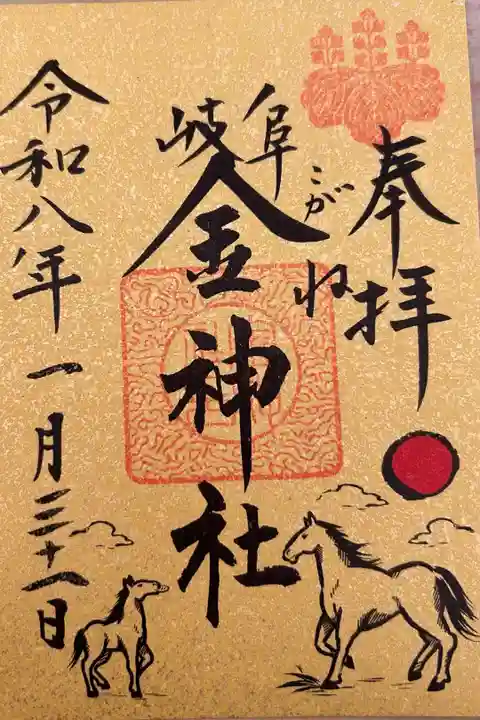 奉拝
岐阜
金神社
こがね
令和八年一月三十一日